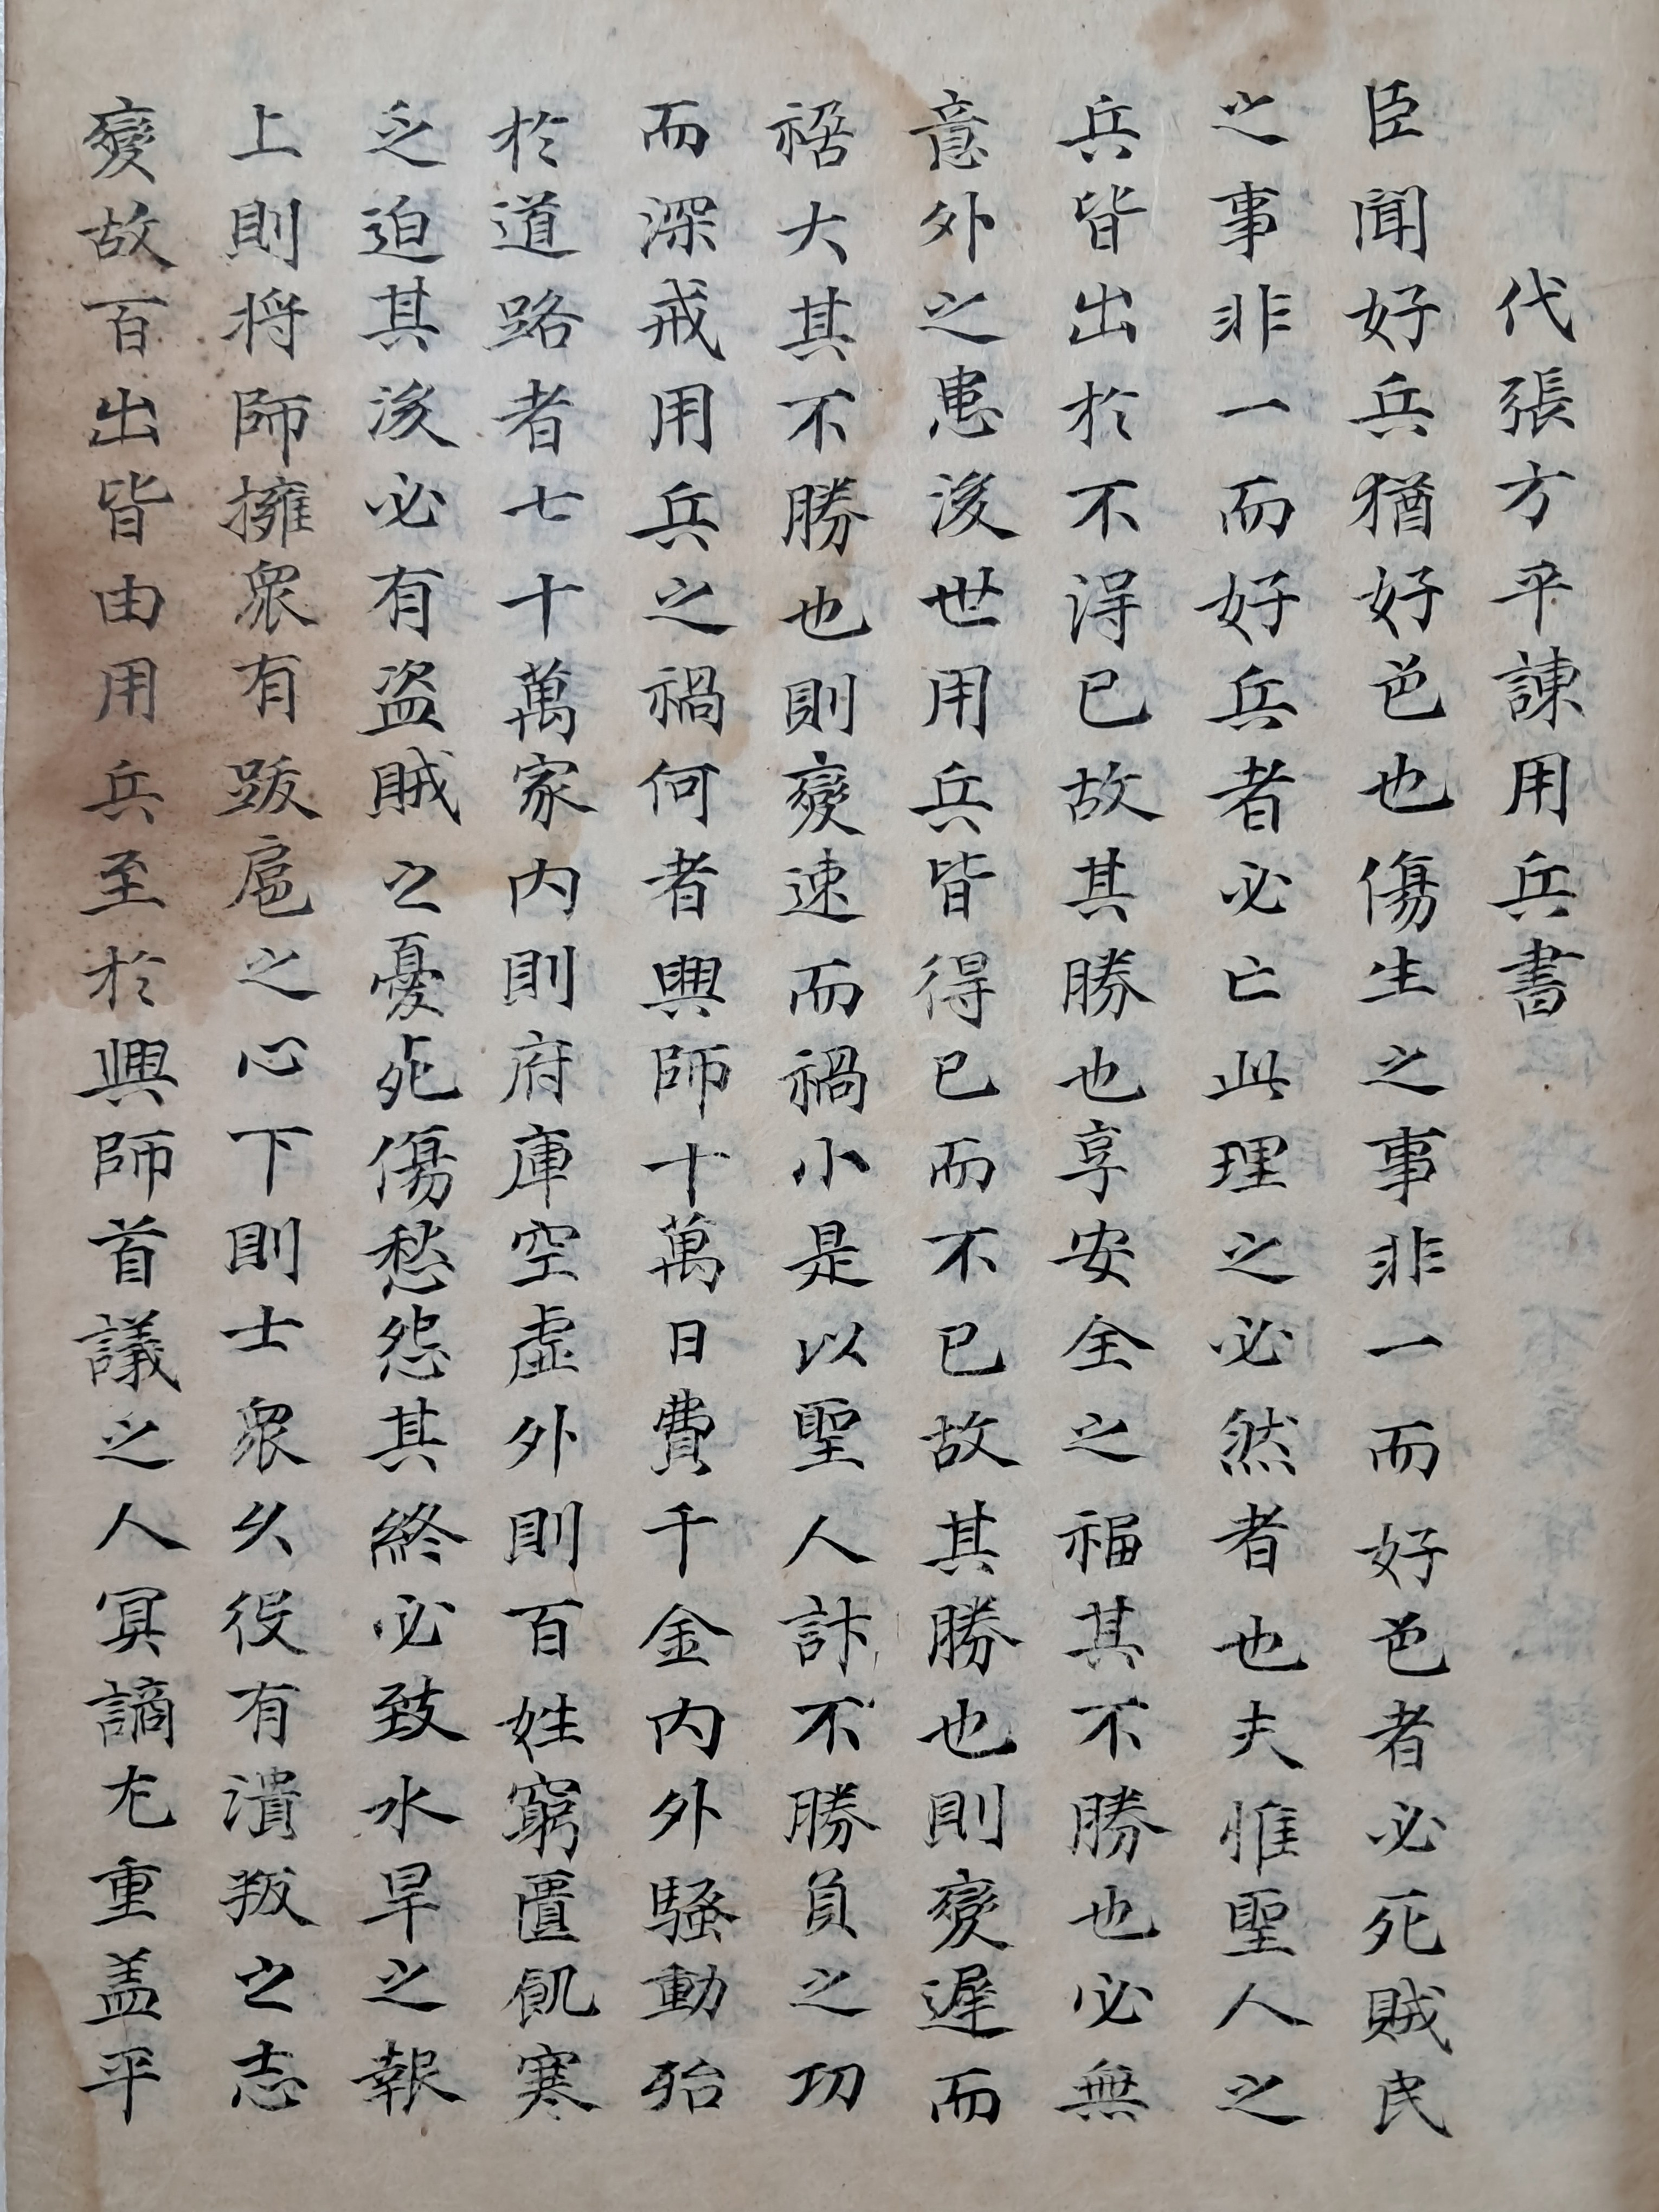 代張方平諫用兵書
臣聞好兵猶好色也傷生之事非一而好色者必死賊民
之事非一而好兵者必亡此理之必然者也夫惟聖人之
兵皆出於不得已故其勝也享安全之福其不勝也必無
意外之患後世用兵皆得已而不已故其勝也則變遲而
禍大其不勝也則變速而禍小是以聖人計不勝負之功
而深戒用兵之禍何者興師十萬日費千金內外騷動殆
於道路者七十萬家內則府庫空虛外則百姓窮匱飢寒
乏迫其後必有盜賊之憂死傷愁怨其終必致水旱之報
上則將帥擁眾有跋扈之心下則士眾久役有潰叛之志
變故百出皆由用兵至於興師首議之人冥謫尤重蓋平